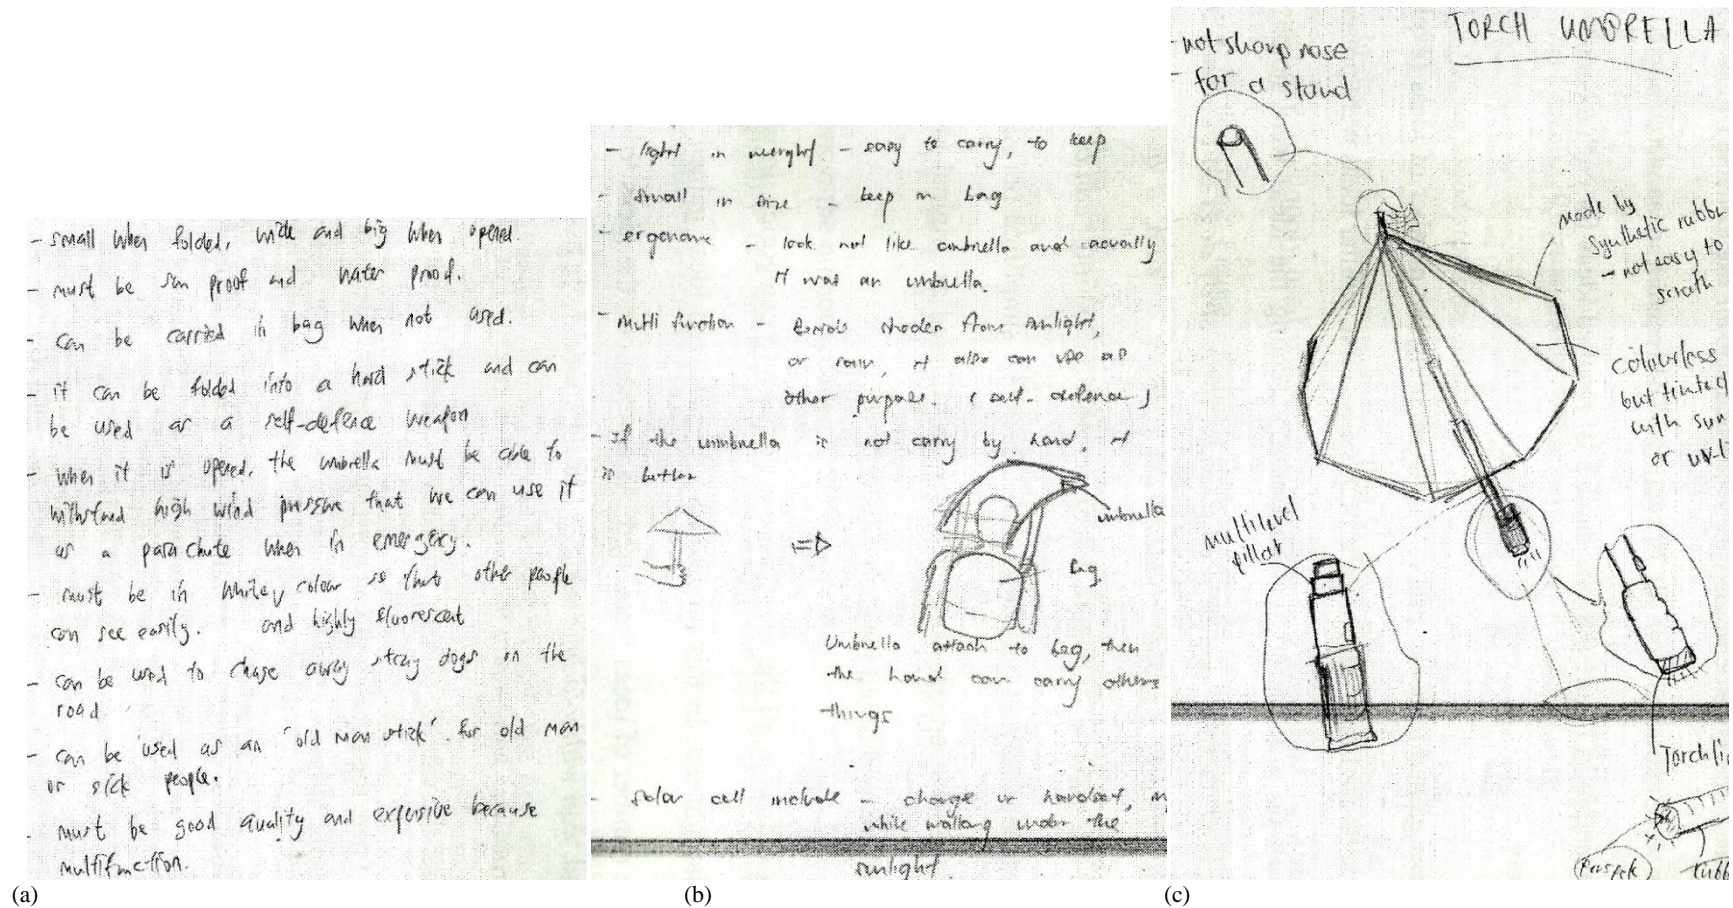 - small when folded, wide and big when opened.
- must be sun proof and water proof.
- can be carried in bag when not used.
- it can be folded into a hard stick and can
be used as a self-defence weapon
- when it is opened, the umbrella must be able to
withstand high wind pressure that we can use it
as a parachute when in emergency.
- must be in whitey colour so that other people
can see easily. and highly fluorescent
- can be used to chase away stray dogs on the
road
- can be used as an "old man stick" for old man
or sick people.
- must be good quality and expensive because
multifunction.
(a)
- light in weight - easy to carry, to keep
- small in size - keep in bag
- ergonomic - look not like umbrella and actually
it was an umbrella.
- multi function - shades from sunlight,
or rain, it also can use as
other purpose. (self-defence)
- If the umbrella is not carry by hand, it
is better
umbrella
bag
Umbrella attach to bag, then
the hand can carry others
things
- Solar cell include - charge ur handset,
while walking under the
sunlight
(b)
TORCH UMBRELLA
- not sharp nose
- for a stand
made by
synthetic rubb
- not easy to
colourless
but tinted
with sun
or uv-li
multilevel
pillar
Torchli
rubb
(c)